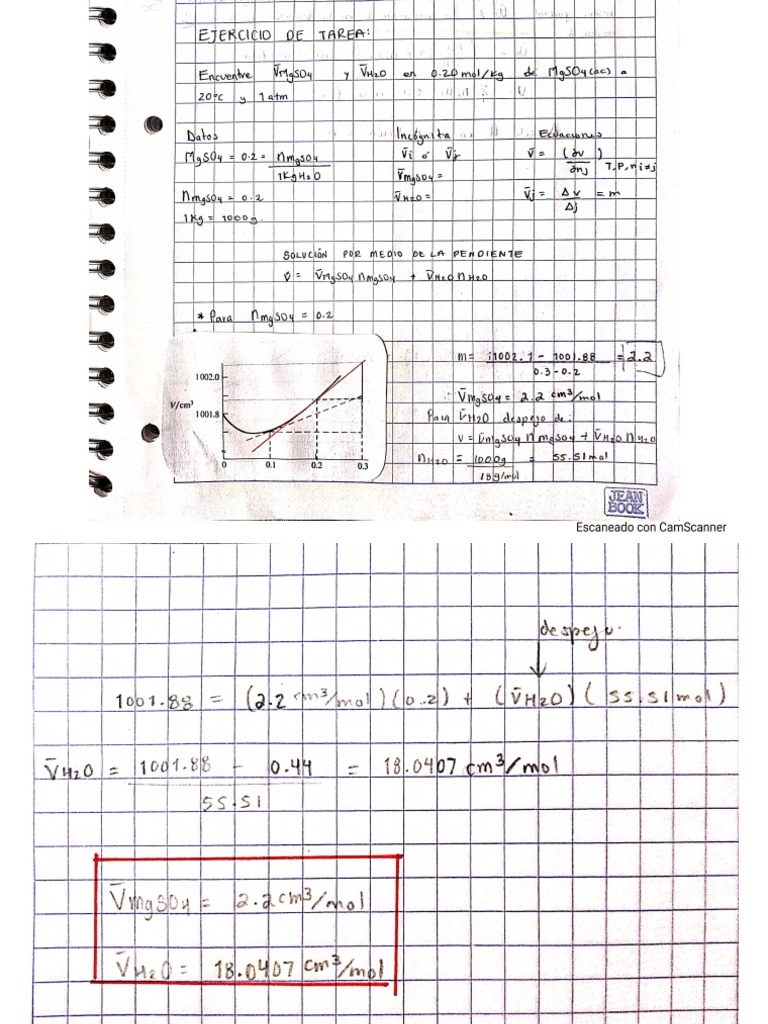 EJERCICIO DE TAREA:
Encuentre V̄MgSO4 y V̄H2O en 0.20 mol/kg de MgSO4(ac) a
20°C y 1 atm
Datos Incógnita Ecuaciones
MgSO4 = 0.2 = nmgSO4 / 1KgH2O
V̄i o V̄j
V̄ = (∂v / ∂nj) T,P,ni≠j
V̄mgSO4 =
nmgSO4 = 0.2
V̄H2O =
V̄j = Δv / Δj = m
1Kg = 1000g.
SOLUCIÓN POR MEDIO DE LA PENDIENTE
V̄ = V̄MgSO4 nmgSO4 + V̄H2O nH2O
* Para nmgSO4 = 0.2
m = 1002.1 - 1001.88 / 0.3 - 0.2 = 2.2
1002.0
V/cm³
1001.8
0 0.1 0.2 0.3
∴ V̄mgSO4 = 2.2 cm³/mol
Para V̄H2O despejo de:
V = V̄mgSO4 nmgSO4 + V̄H2O nH2O
nH2O = 1000g / 18g/mol = 55.51mol
JEAN
BOOK
Escaneado con CamScanner
despejo.
1001.88 = (2.2 cm³/mol)(0.2) + (V̄H2O)(55.51mol)
V̄H2O = 1001.88 - 0.44 / 55.51 = 18.0407 cm³/mol
V̄mgSO4 = 2.2cm³/mol
V̄H2O = 18.0407 cm³/mol